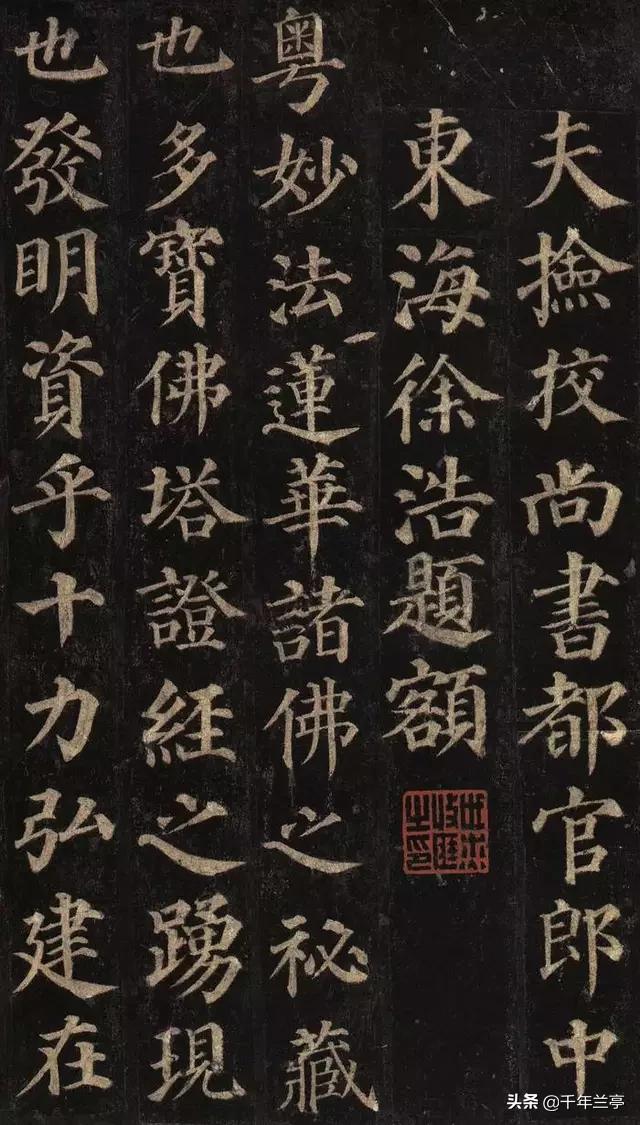 夫撿挍尚書都官郎中
東海徐浩題額
粵妙法蓮華諸佛之祕藏
也多寶佛塔證經之踴現
也發明資乎十力弘建在
头条 @千年兰亭